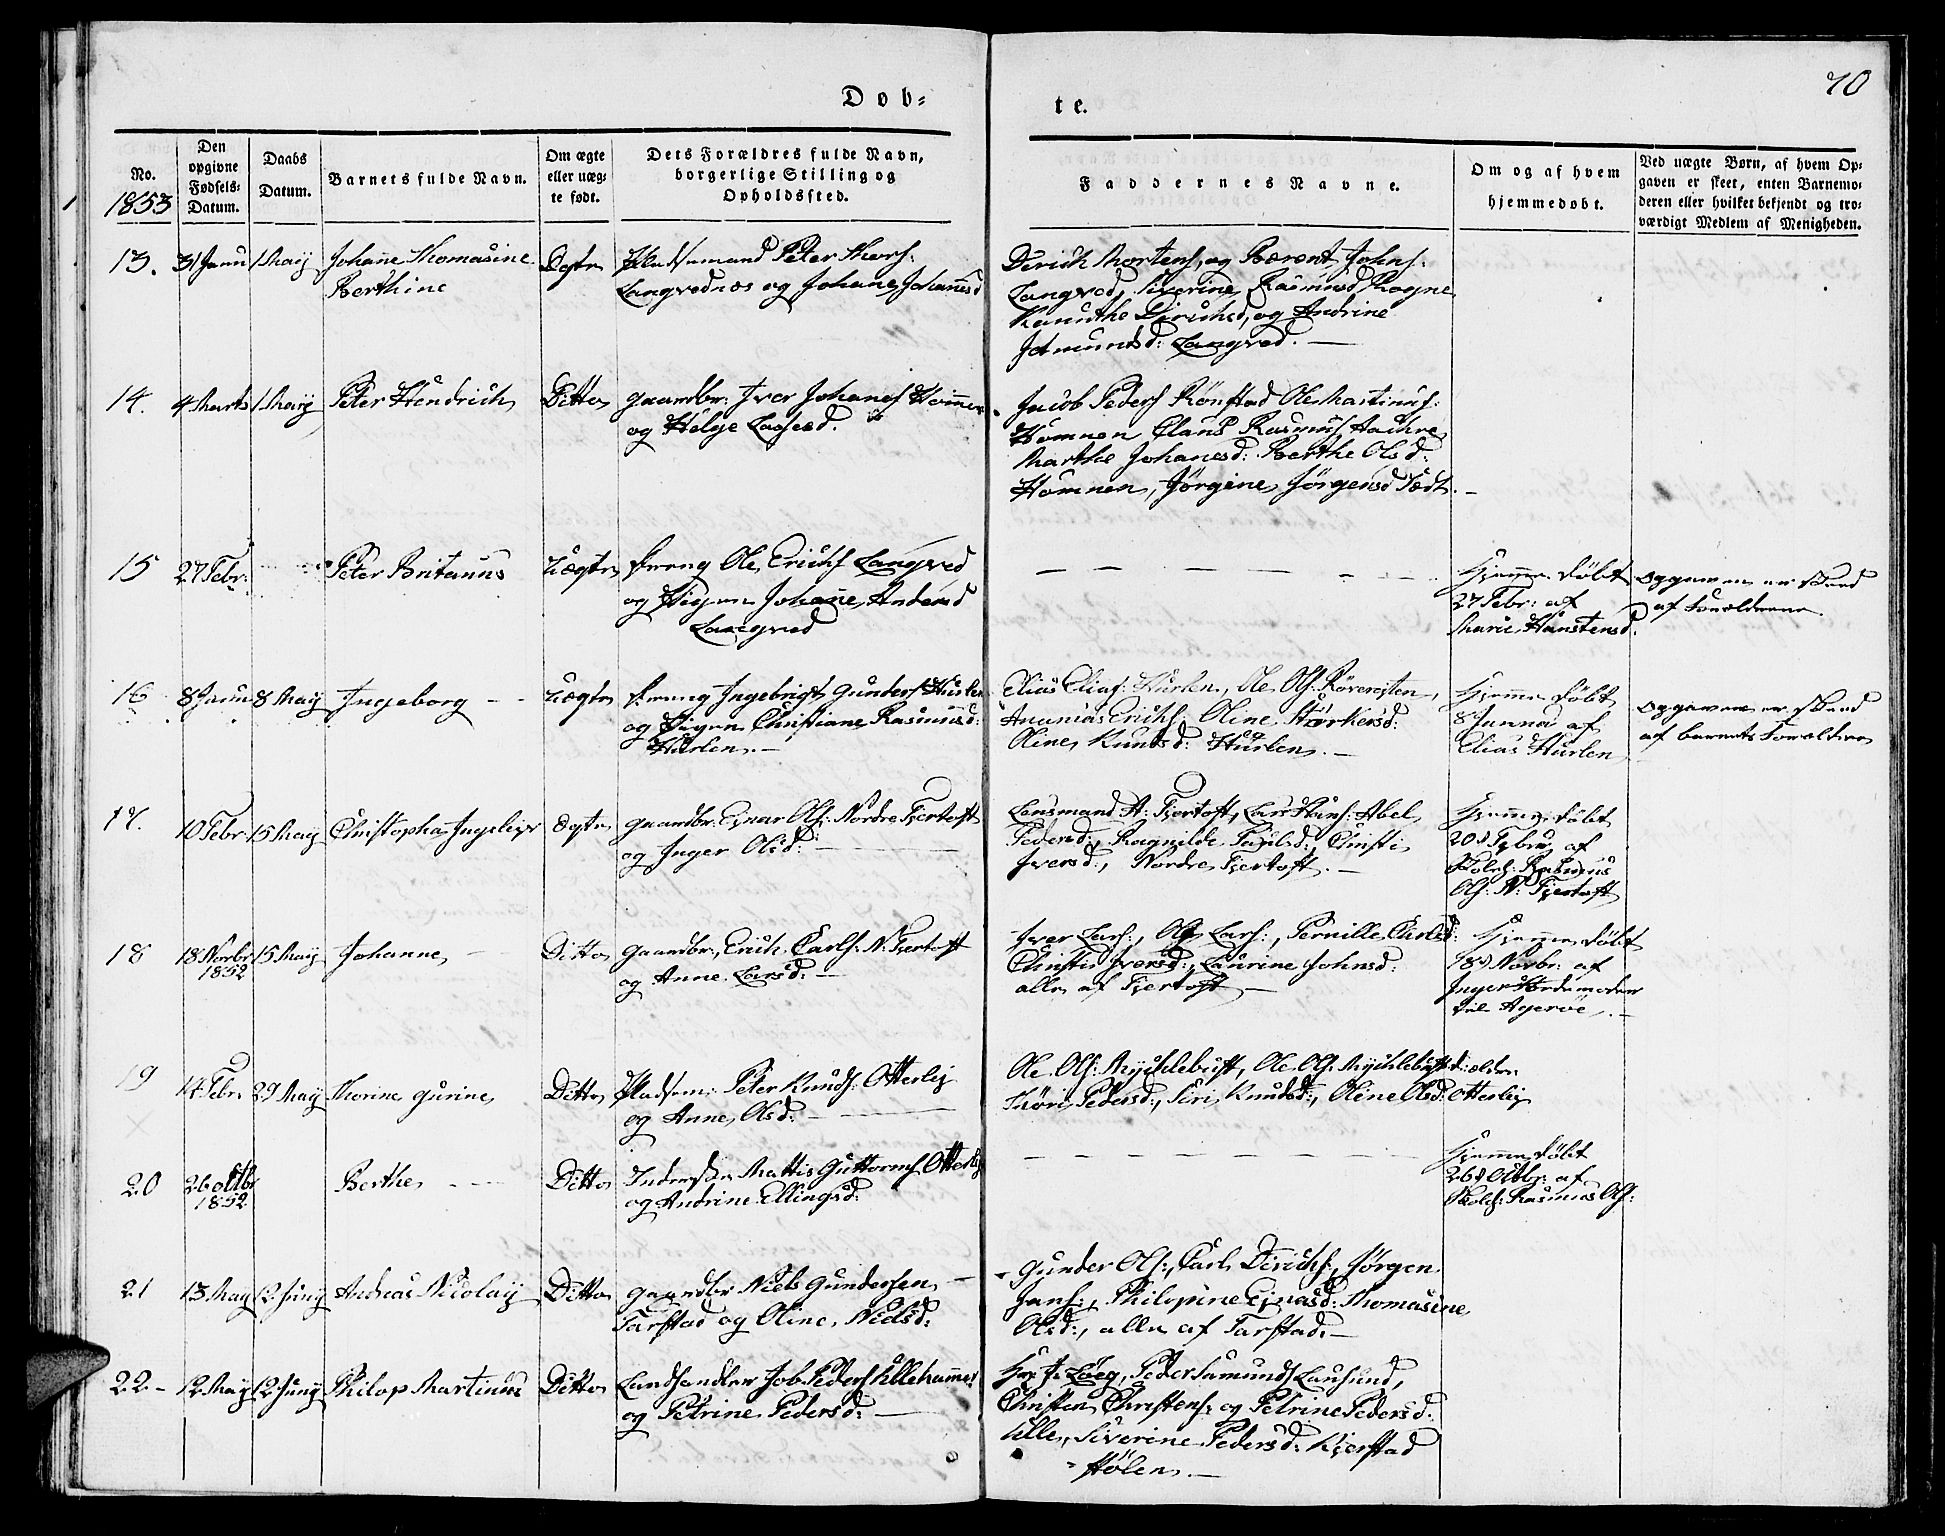 Døb-
te.
70
No.
1853
Den
opgivne
Fødsels-
Datum.
Daabs
Datum.
Barnets fulde Navn.
Om ægte
eller uæg-
te født.
Dets Forældres fulde Navn,
borgerlige Stilling og
Opholdssted.
Faddernes Navne.
Om og af hvem
hjemmedøbt.
Ved uægte Børn, af hvem Op-
gaven er skeet, enten Barnemo-
deren eller hvilket bekjendt og tro-
værdigt Medlem af Menigheden.
13. 31 Janu 1 May Johane Thomasine
Berthine
Pladsemand Peter Thors:
Langvednæs og Johane Johanesd
Dirich Mortens, og Berent Johns:
Langved, Siverine Rasmusd Rogne
Kanuthe Dirichsd, og Andrine
Langved.
14. 4 Marts 1 May Peter Hendrich Ditto
Gaardbr: Iver Johanes Homnen
og Helge Lassesd.
Jacob Peders Rønstad Ole Martinus:
Homnen, Claus Rasmus
Marthe Johanesd: Berthe Olsd:
Homnen, Jørgine Jørgensd
15 27 Febr: Peter Uægte
Dreng Ole Erichs Langved
og Pigen Johanne Andersd
Langved
Hjemmedøbt
27 Febr: af
Marie Hanstensd.
Opgaven er skeed
af Forældrene.
16 8 Janu 8 May Ingeborg Uægte
Dreng Ingebrigt Gunders Hurlen
og Pigen Christiane Rasmusd:
Hurlen.
Elias Elias: Hurlen, Ole Ols:
Ananias Erichs: Oline Størkersd:
Oline Knudsd: Hurlen.
Hjemmedøbt
8 Janua af
Elias Hurlen
Opgaven er skeed
af barnets Forældre
17. 10 Febr 15 May Christopha Ægte
Gaardbr: Ejnar Ols: Nordre Fjertoft
og Inger Olsd:
Lensmand H: Fjertoft, Lars Hans: Abel
Pedersd:, Ragnilde Christi
Iversd:, Nordre Fjertoft.
Hjemmedøbt
af
Rasmus
Ols: N: Fjertoft
18 18 Novbr 15 May Johanne Ditto
1852
Gaardbr: Erich Carls: N: Fjertoft
og Anne Larsd:
Iver Lars:, Lars:, Pernille
Christie Iversd:, Laurine Johnsd:
alle af Fjertoft
Hjemmedøbt
18d Novbr: af
Inger
til Agerøe
19 14 Febr 29 May Thorine Gurine Ditto
Pladsem: Peter Knuds: Otterlej
og Anne Olsd:
Ole Ols: Mychlebust, Ole Ols: Mychlebust
Pedersd:, Siri Knudsd:, Oline Olsd: Otterlej
20 26 Oktbr Berthe Ditto
1852
Inderster Mattis Guttorms: Otterlej
og Andrine Ellingsd:
Hjemmedøbt
26d Oktbr: af
Rasmus Ols:
21 13 May 12 Juny Andreas Nicolay Ditto
Gaardbr Niels Gundersen
Tarstad og Oline Nielsd:
Gunder Ols:, Carl Dirichs:, Jørgen
Jans:, Philopine Thomasine
Olsd:, alle af Tarstad.
22 12 May 12 Juny Philop Martinus Ditto
Landhandler Job Peders Ullehammer
og Petrine Pedersd:
Peder
Christen Christens: og Petrine Pedersd:
Ulle, Siverine Pedersd: Kjerstad
Hølen.